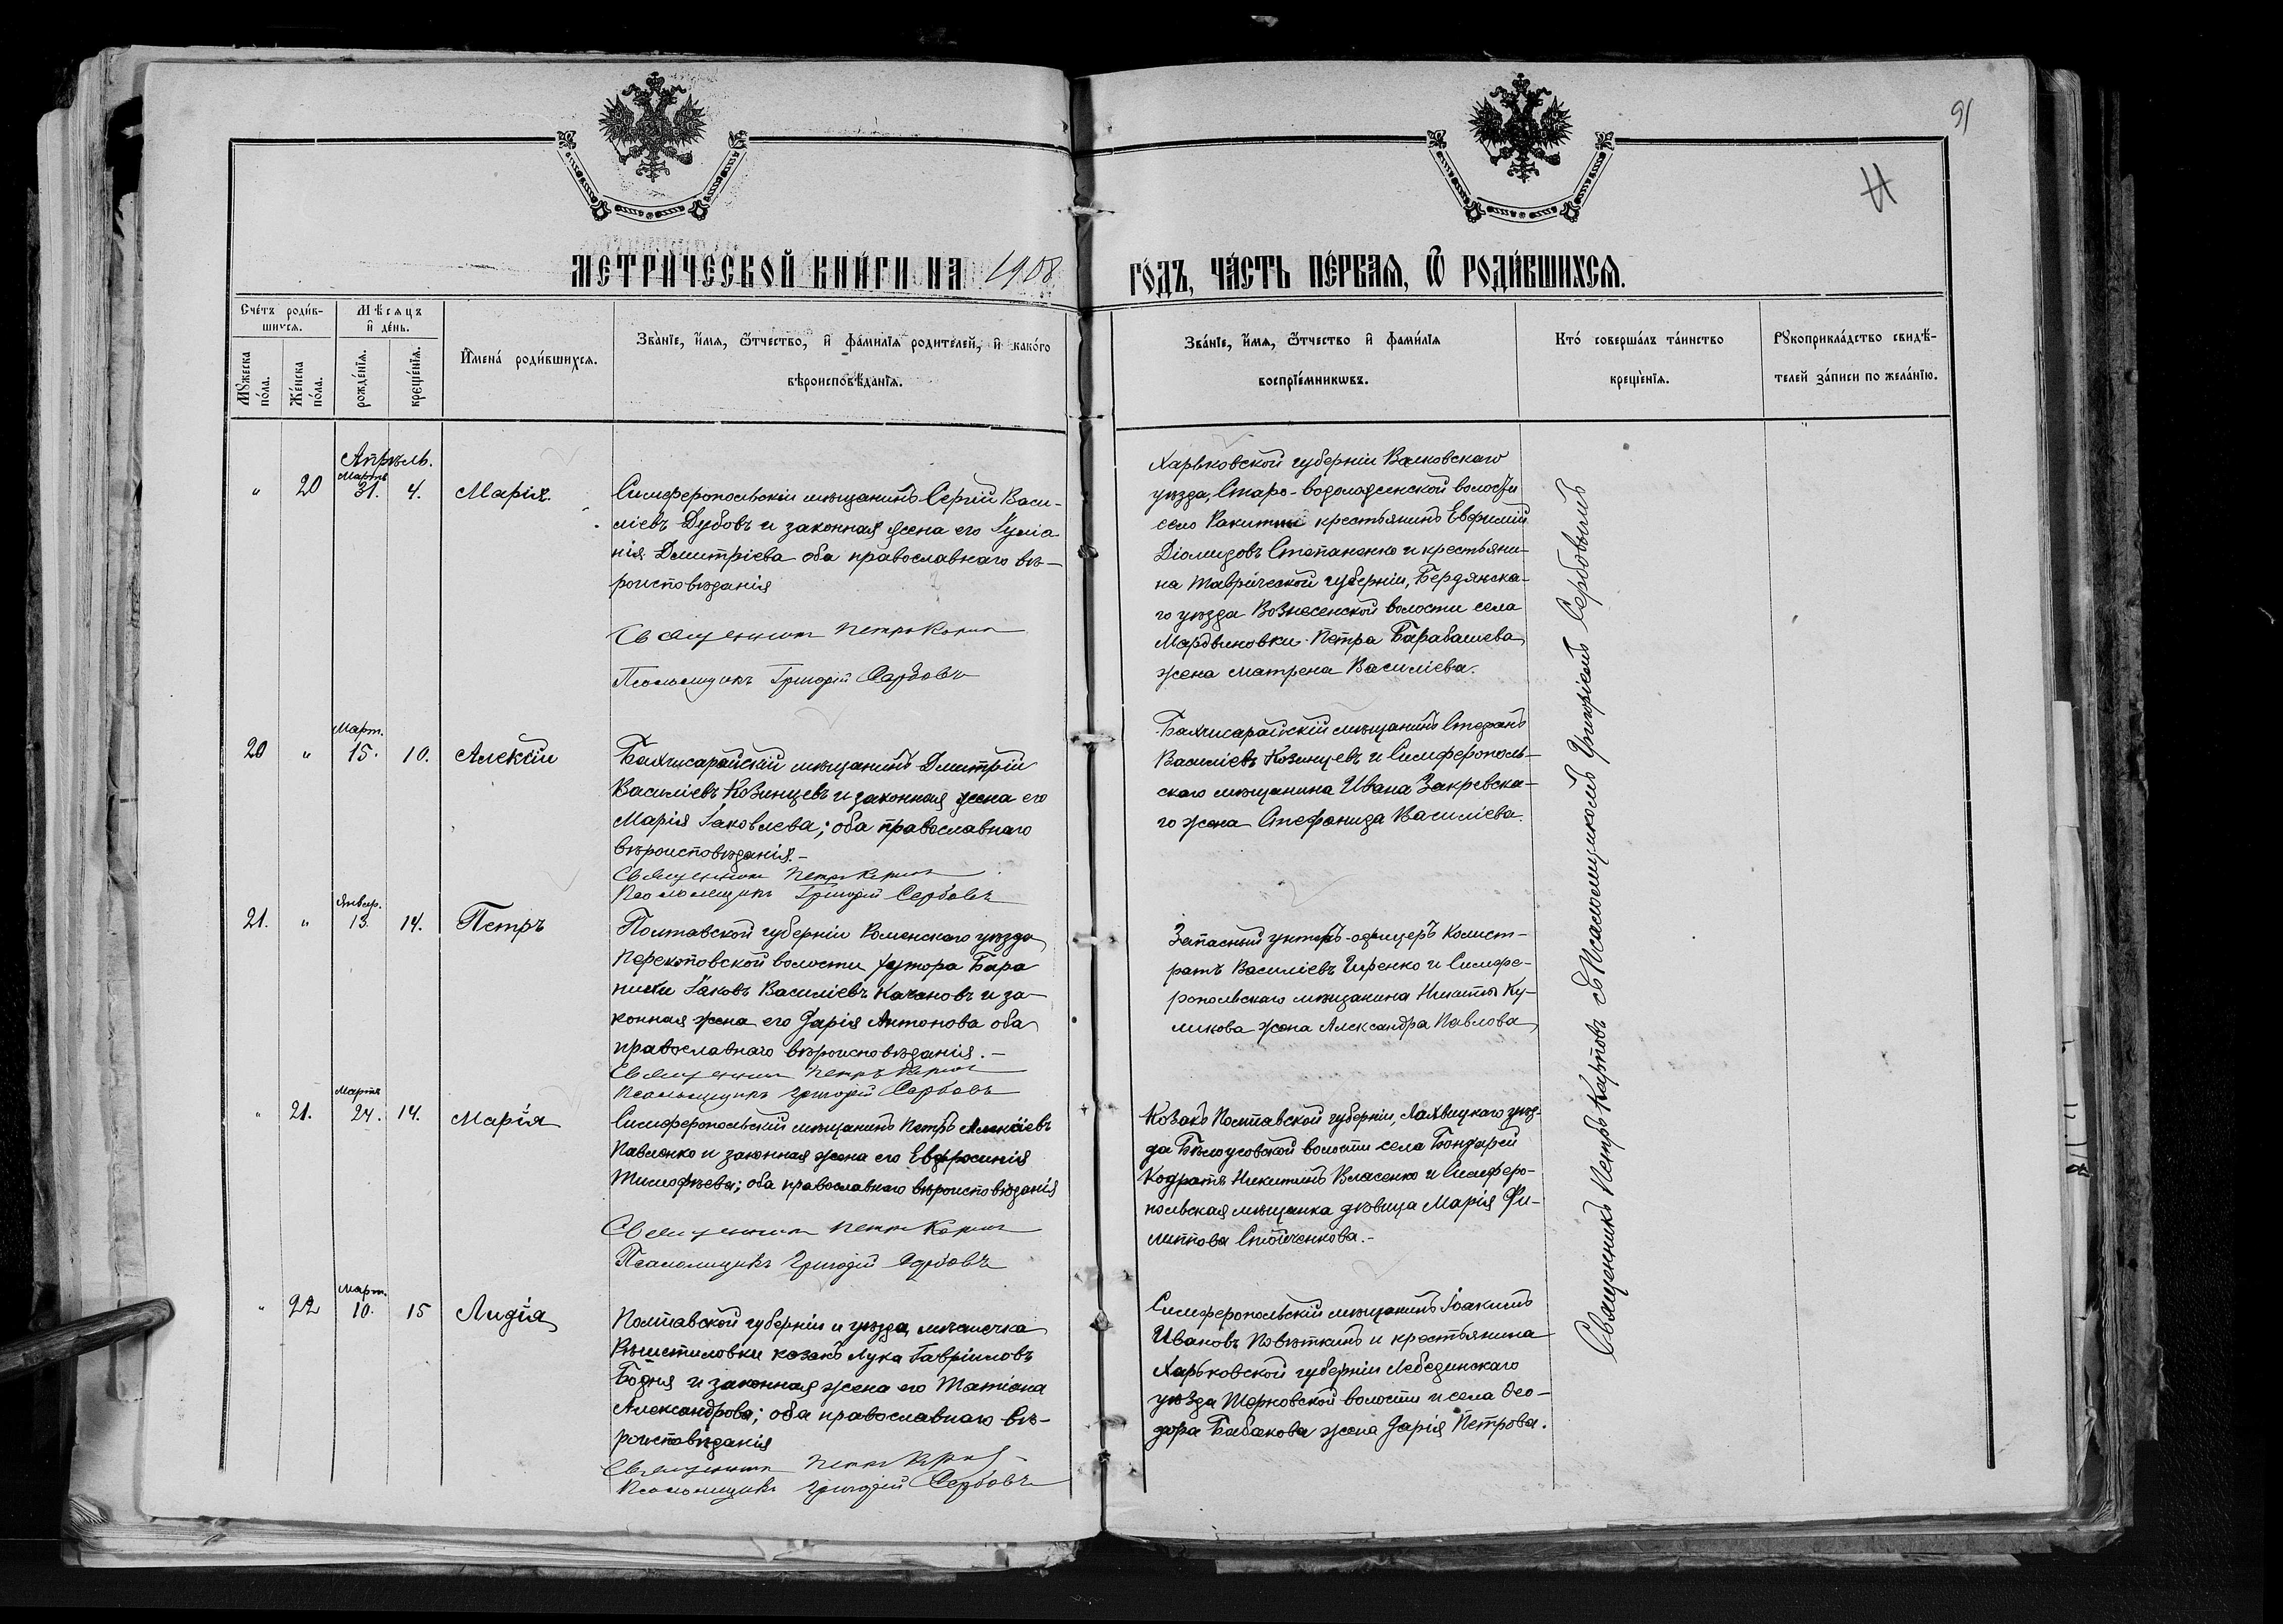 91
Н
МЕТРИ́ЧЕСКОЙ КНИ́ГИ НА 1908 ГО́ДЪ, ЧА́СТЬ ПЕ́РВАѦ, Ѿ РОДИ́ВШИХСѦ.
Сче́тъ роди́в-
шихсѧ.
Мѣсѧцъ
и де́нь.
Мꙋжеска
по́ла.
Же́нска
по́ла.
рожде́нїѧ.
креще́нїѧ.
Имена̀ роди́вшихсѧ.
Зва́нїе, и́мѧ, ѻ҆́тчество, и фами́лїѧ роди́телей, и како́го
вѣроисповѣ́данїѧ.
Зва́нїе, и́мѧ, ѻ҆́тчество и фами́лїѧ
воспрїе́мникѡвъ.
Кто́ соверша́лъ та́инство
креще́нїѧ.
Рꙋкоприкла́дство свидѣ́-
телей за́писи по жела́нїю.
Апрѣль.
" 20 Мартъ 31. 4. Марія.
Симферопольскій мѣщанинъ Сергій Васи-
ліевъ Дубовъ и законная жена его Іуліа
нія Дмитріева оба православнаго вѣ-
роисповѣданія
Священникъ Петръ Карпов
Псаломщикъ Григорій Сербовъ
Харьковской губерніи Валковскаго
уѣзда, Старо-водолажской волости
село Ракитни крестьянинъ Евфимій
Діомидовъ Степаненко и крестьяни-
на Таврической губерніи, Бердянска-
го уѣзда Вознесенской волости села
Мардвиновки Петра Барабашева
жена Матрена Василіева.
20 " Март. 15. 10. Алексій
Бахчисарайскій мѣщанинъ Дмитрій
Василіевъ Козинцевъ и законная жена его
Марія Іаковлева; оба православнаго
вѣроисповѣданія.-
Священникъ Петръ Карпов
Псаломщикъ Григорій Сербовъ
Бахчисарайскій мѣщанинъ Стефанъ
Василіевъ Козинцевъ и Симферополь-
скаго мѣщанина Ивана Закревска-
го жена Стефанида Василіева.
21. " Январ. 13. 14. Петръ
Полтавской губерніи Роменскаго уѣзда
Перекоповской волости хутора Бара
Іаковъ Василіевъ Качановъ и за-
конная жена его Дарія Антонова оба
православнаго вѣроисповѣданія.-
Священникъ Петръ Карпов
Псаломщикъ Григорій Сербовъ
Запасный унтеръ-офицеръ Калист-
ратъ Василіевъ Гиренко и Симфе-
ропольскаго мѣщанина Игнатія Ку-
ликова жена Александра Павлова
" 21. Мартъ 24. 14. Марія
Симферопольскій мѣщанинъ Петръ Алексіевъ
Павленко и законная жена его Евфросинія
Тимофѣева; оба православнаго вѣроисповѣданія
Священникъ Петръ Карпов
Псаломщикъ Григорій Сербовъ
Козакъ Полтавской губерніи, Лохвицкаго уѣз-
да Бѣлоусовской волости села Бондарей
Кодратъ Никитинъ Власенко и Симферо-
польская мѣщанка дѣвица Марія Фи-
липпова Стойченкова.-
" 22 Март. 10. 15 Лидія
Полтавской губерніи и уѣзда, мѣстечка
Рѣшетиловки козакъ Лука Гавріиловъ
Бодня и законная жена его Татіана
Александрова; оба православнаго вѣ-
роисповѣданія
Священникъ Петръ Карпов
Псаломщикъ Григорій Сербовъ
Симферопольскій мѣщанинъ Іоакимъ
Ивановъ Повѣткинъ и крестьянина
Харьковской губерніи Лебединскаго
уѣзда Терновской волости и села Ѳео-
дора Бабакова жена Дарія Петрова.
Священникъ Петръ Карповъ съ Псаломщикомъ Григоріемъ Сербовымъ